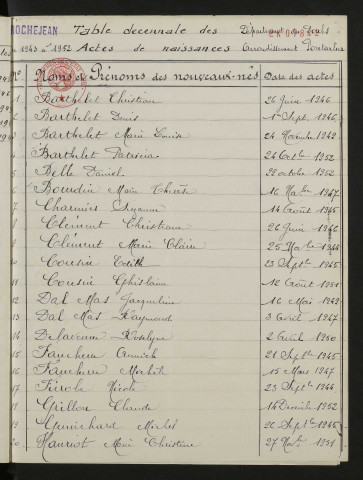 ROCHEJEAN Table décennale des Département du Doubs
1943 à 1952 Actes de naissances Arrondissement Pontarlier
N° Noms et Prénoms des nouveaux-nés Date des actes
1 Barthelet Christian 26 Juin 1946
2 Barthelet Denis 1er Septbre 1946
3 Barthelet Marie Louise 24 Novembre 1942
4 Barthelet Patricia 24 Octbre 1952
5 Belle Daniel 28 octobre 1952
6 Bourdin Marie Thérèse 16 Novbre 1947
7 Charmier Suzanne 14 Août 1945
8 Clément Christiane 26 Juin 1946
9 Clément Marie Claire 25 Novbre 1944
10 Cousin Edith 23 Septbre 1945
11 Cousin Ghislaine 12 Août 1951
12 Dal Mas Jacqueline 16 Mai 1943
13 Dal Mas Raymond 3 Avril 1947
14 Delavenne Roselyne 2 Avril 1950
15 Faucheur Annick 21 Septbre 1945
16 Faucheur Michèle 15 Mars 1947
17 Férole Nicole 23 Septbre 1944
18 Grillon Claude 14 Décembre 1952
19 Guinchard Michel 20 Septbre 1945
20 Hanriot Marie Christine 27 Novbre 1951